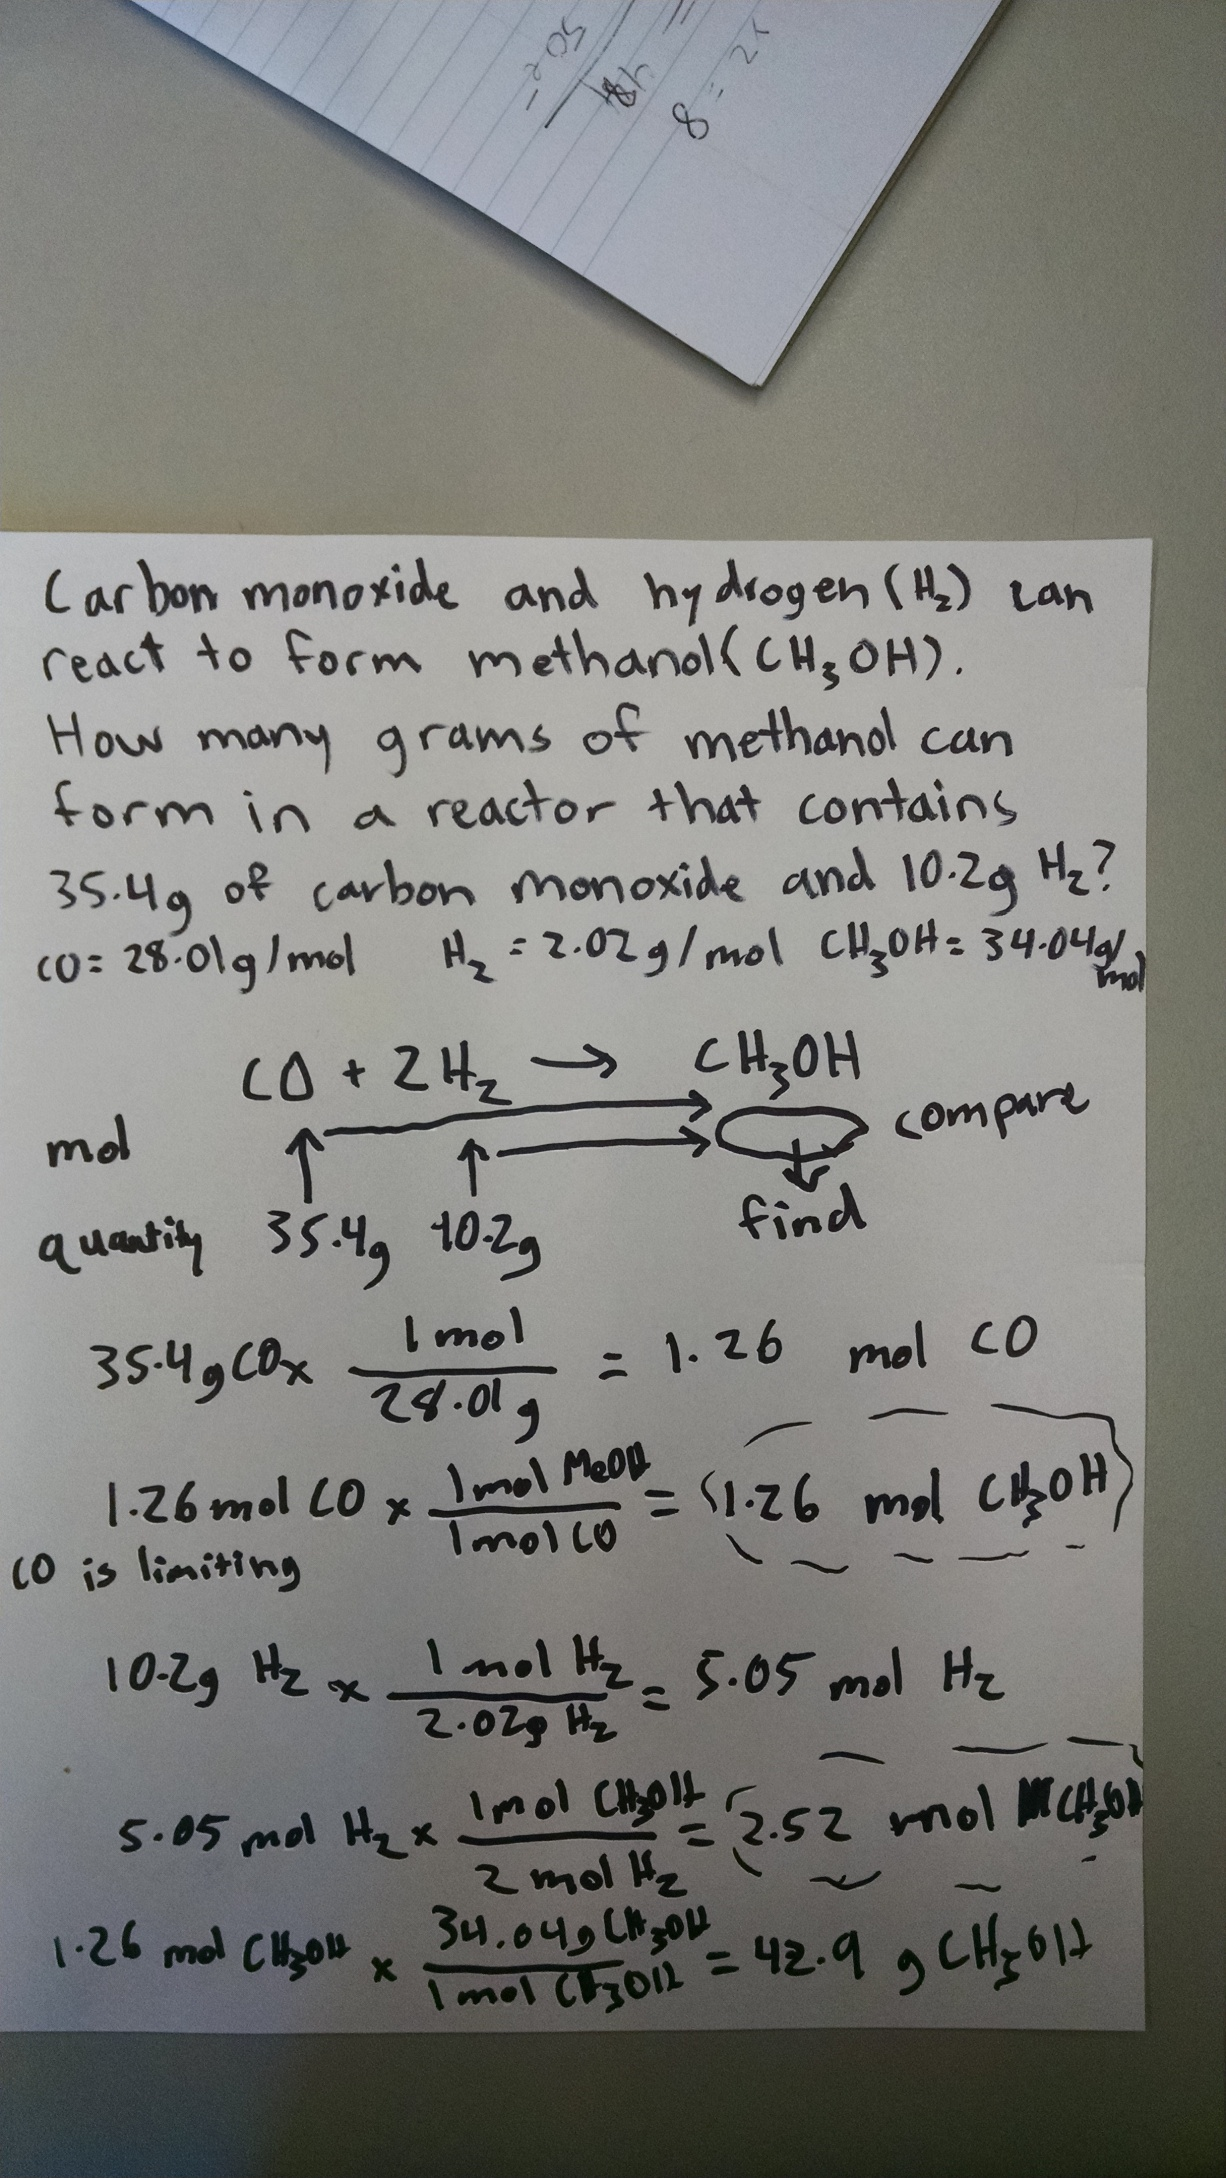 -205
48
8 = 2x
Carbon monoxide and hydrogen (H₂) can
react to form methanol (CH₃OH).
How many grams of methanol can
form in a reactor that contains
35.4g of carbon monoxide and 10.2g H₂?
CO = 28.01g/mol H₂ = 2.02g/mol CH₃OH = 34.04g/mol
CO + 2H₂ → CH₃OH
mol compare
quantity 35.4g 10.2g find
35.4g CO x 1 mol / 28.01g = 1.26 mol CO
1.26 mol CO x 1 mol MeOH / 1 mol CO = 1.26 mol CH₃OH
CO is limiting
10.2g H₂ x 1 mol H₂ / 2.02g H₂ = 5.05 mol H₂
5.05 mol H₂ x 1 mol CH₃OH / 2 mol H₂ = 2.52 mol CH₃OH
1.26 mol CH₃OH x 34.04g CH₃OH / 1 mol CH₃OH = 42.9 g CH₃OH